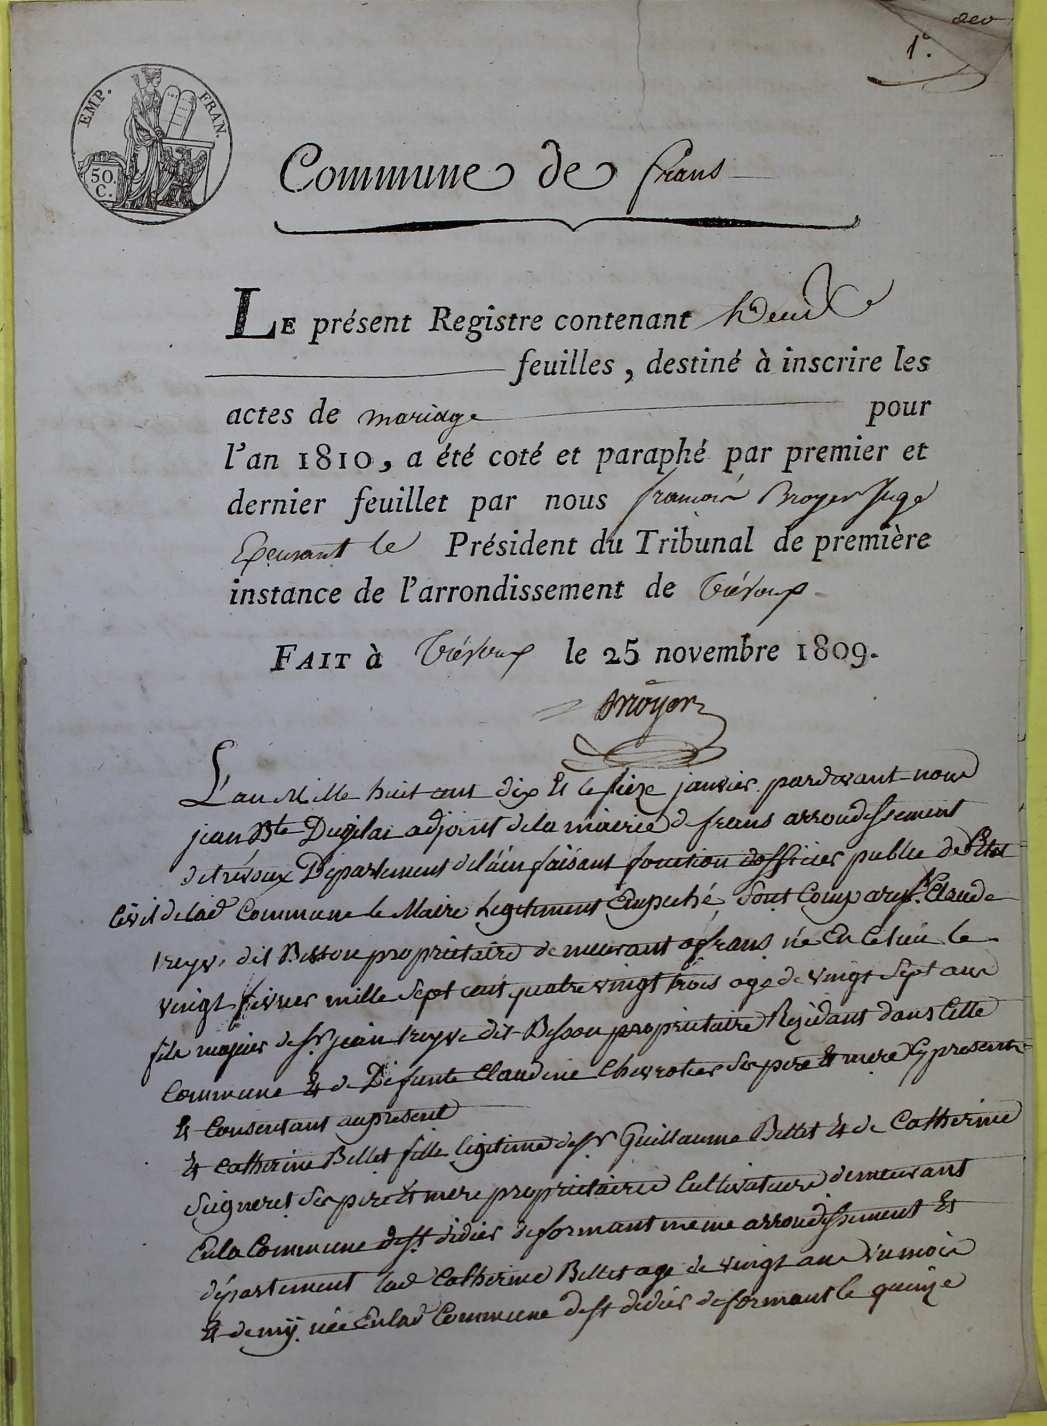 deo
1.er
EMP. FRAN.
50. C.
Commune de frans
LE présent Registre contenant Deux
feuilles, destiné à inscrire les
actes de mariage pour
l'an 1810, a été coté et paraphé par premier et
dernier feuillet par nous françois Broyer Juge
Exerçant le Président du Tribunal de première
instance de l'arrondissement de trévoux
FAIT à trévoux le 25 novembre 1809.
Broyer
L'an Mille huit cent dix Et le seize janvier pardevant nous
jean Bte Dugelai adjoint de la mairie de frans arrondissement
de trévoux Département de l'ain faisant fonction d'officier public de l'Etat
Civil de lad Commune le Maire Legitiment Empeché, Sont Comparus Sr. Claude
treyve dit Besson propriétaire demeurant a frans né En Ce lieu le
vingt fevrier mille Sept cent quatre vingt trois agé de vingt Sept ans
fils majeur de Sr jean treyve dit Besson propriétaire Résidant dans Cette
Commune Et de Defunte Claudine Chevrotier Ses pere Et mere Cy present
Et Consentant au present
Et Catherine Billet fille legitime de Sr Guillaume Billet Et de Catherine
Seigneret Ses pere Et mere propriétaire Cultivateurs demeurant
En la Commune de St didier de formant meme arrondissement Et
département lad Catherine Billet agé de vingt ans un mois
Et demÿ née En lad Commune de St didier de formant le quinze